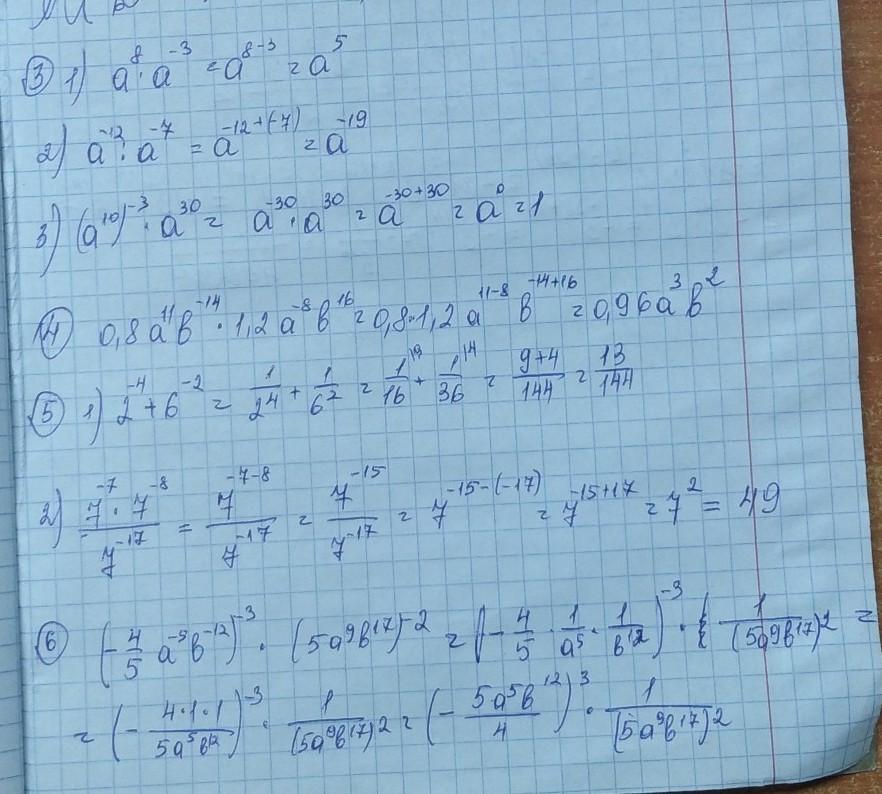 ③ 1) a⁸ · a⁻³ = a⁸⁻³ = a⁵
2) a⁻¹² : a⁻⁷ = a⁻¹²⁺⁽⁻⁷⁾ = a⁻¹⁹
3) (a¹⁰)⁻³ · a³⁰ = a⁻³⁰ · a³⁰ = a⁻³⁰⁺³⁰ = a⁰ = 1
④ 0,8a¹¹b⁻¹⁴ · 1,2a⁻⁸b¹⁶ = 0,8·1,2a¹¹⁻⁸ b⁻¹⁴⁺¹⁶ = 0,96a³b²
⑤ 1) 2⁻⁴ + 6⁻² = 1/2⁴ + 1/6² = 1/16 + 1/36 = (9+4)/144 = 13/144
2) (7⁻⁷ · 7⁻⁸)/7⁻¹⁷ = 7⁻⁷⁻⁸/7⁻¹⁷ = 7⁻¹⁵/7⁻¹⁷ = 7⁻¹⁵⁻⁽⁻¹⁷⁾ = 7⁻¹⁵⁺¹⁷ = 7² = 49
⑥ (-4/5 a⁻⁵b⁻¹²)⁻³ · (5a⁹b¹⁷)⁻² = (-4/5 · 1/a⁵ · 1/b¹²)⁻³ · 1/(5a⁹b¹⁷)² =
= (-(4·1·1)/(5a⁵b¹²))⁻³ · 1/(5a⁹b¹⁷)² = (-(5a⁵b¹²)/4)³ · 1/(5a⁹b¹⁷)²